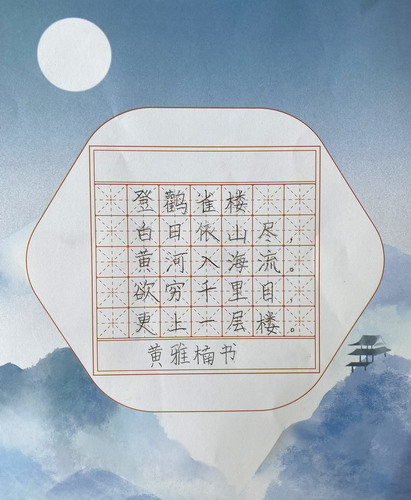 登鹳雀楼
白日依山尽，
黄河入海流。
欲穷千里目，
更上一层楼。
黄雅楠书